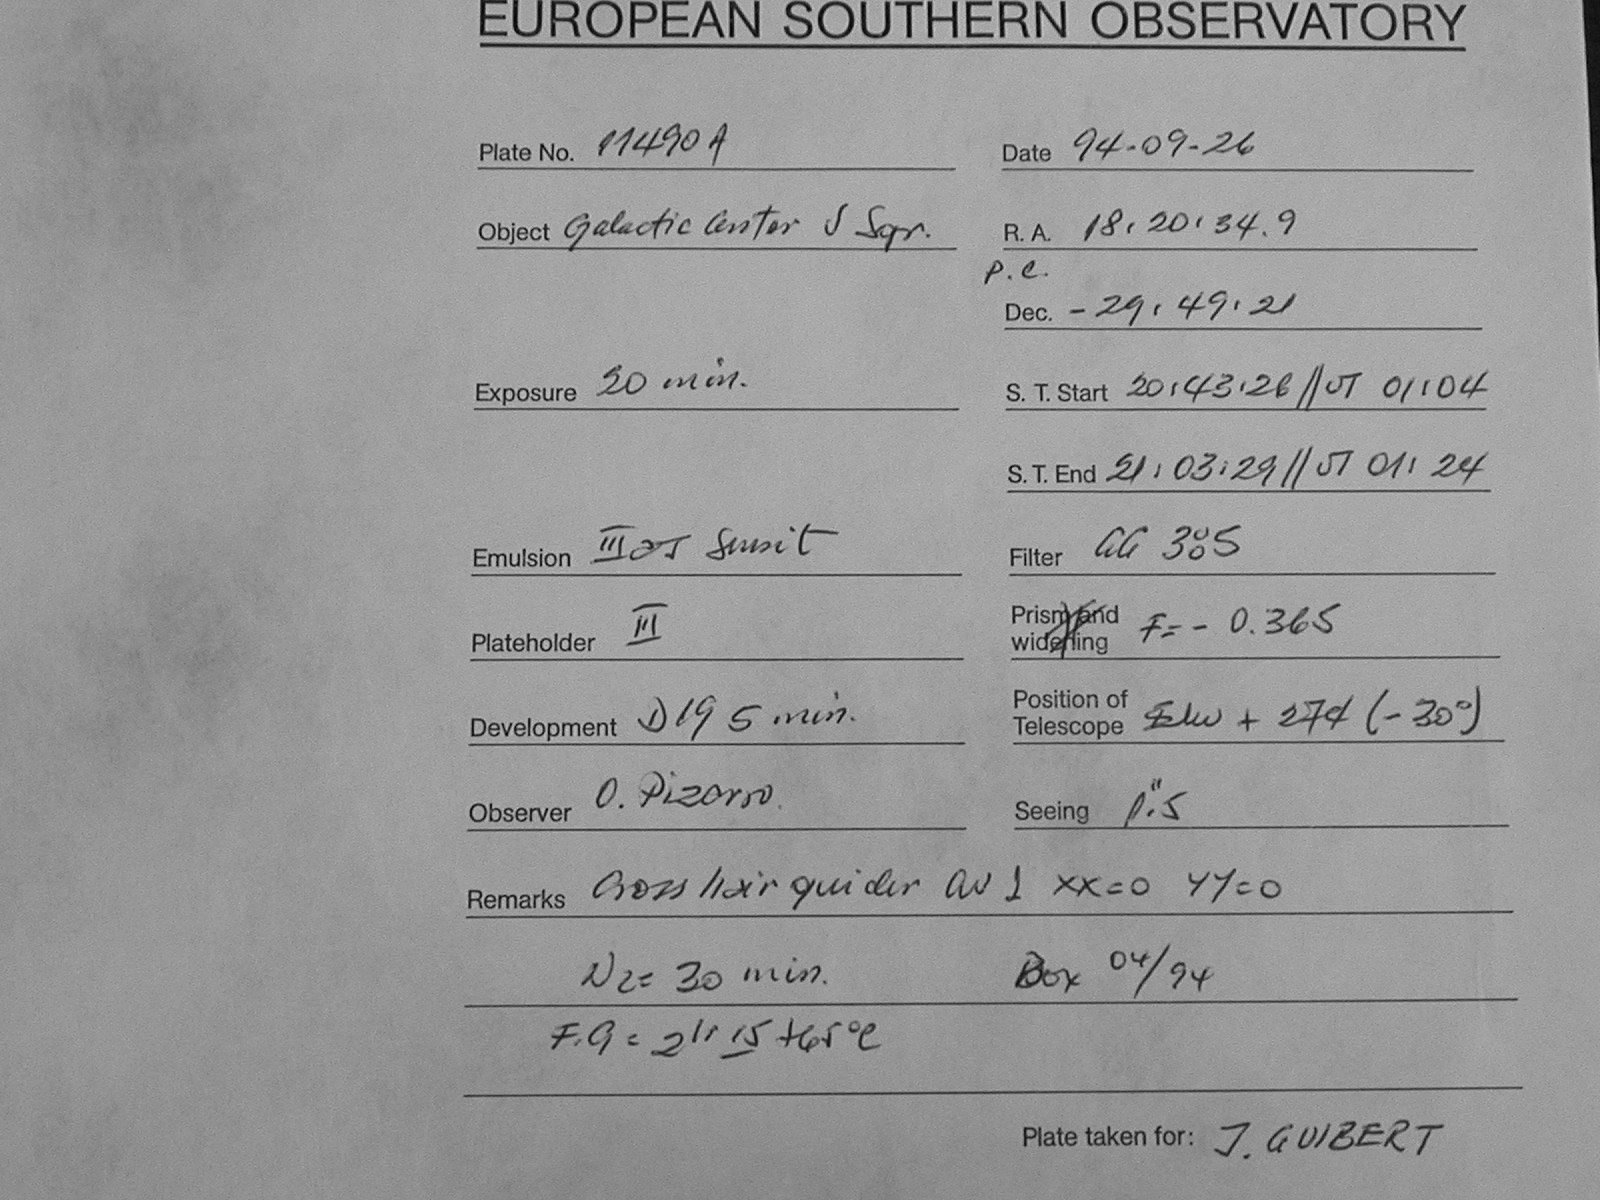 EUROPEAN SOUTHERN OBSERVATORY
Plate No. 11490A Date 94-09-26
Object Galactic Center S Sgr. R. A. 18:20:34.9
P.C.
Dec. -29:49:21
Exposure 20 min. S. T. Start 20:43:26 // UT 01:04
S. T. End 21:03:29 // UT 01:24
Emulsion IIIaJ Sensit Filter GG 385
Plateholder III Prism and widening F=-0.365
Development D19 5 min. Position of Telescope + 274 (-30°)
Observer O. Pizarro. Seeing 1".5
Remarks Cross hair guider XX=0 YY=0
N2= 30 min. Box 04/94
F.G = 2hr 15 +65°C
Plate taken for: J. GUIBERT